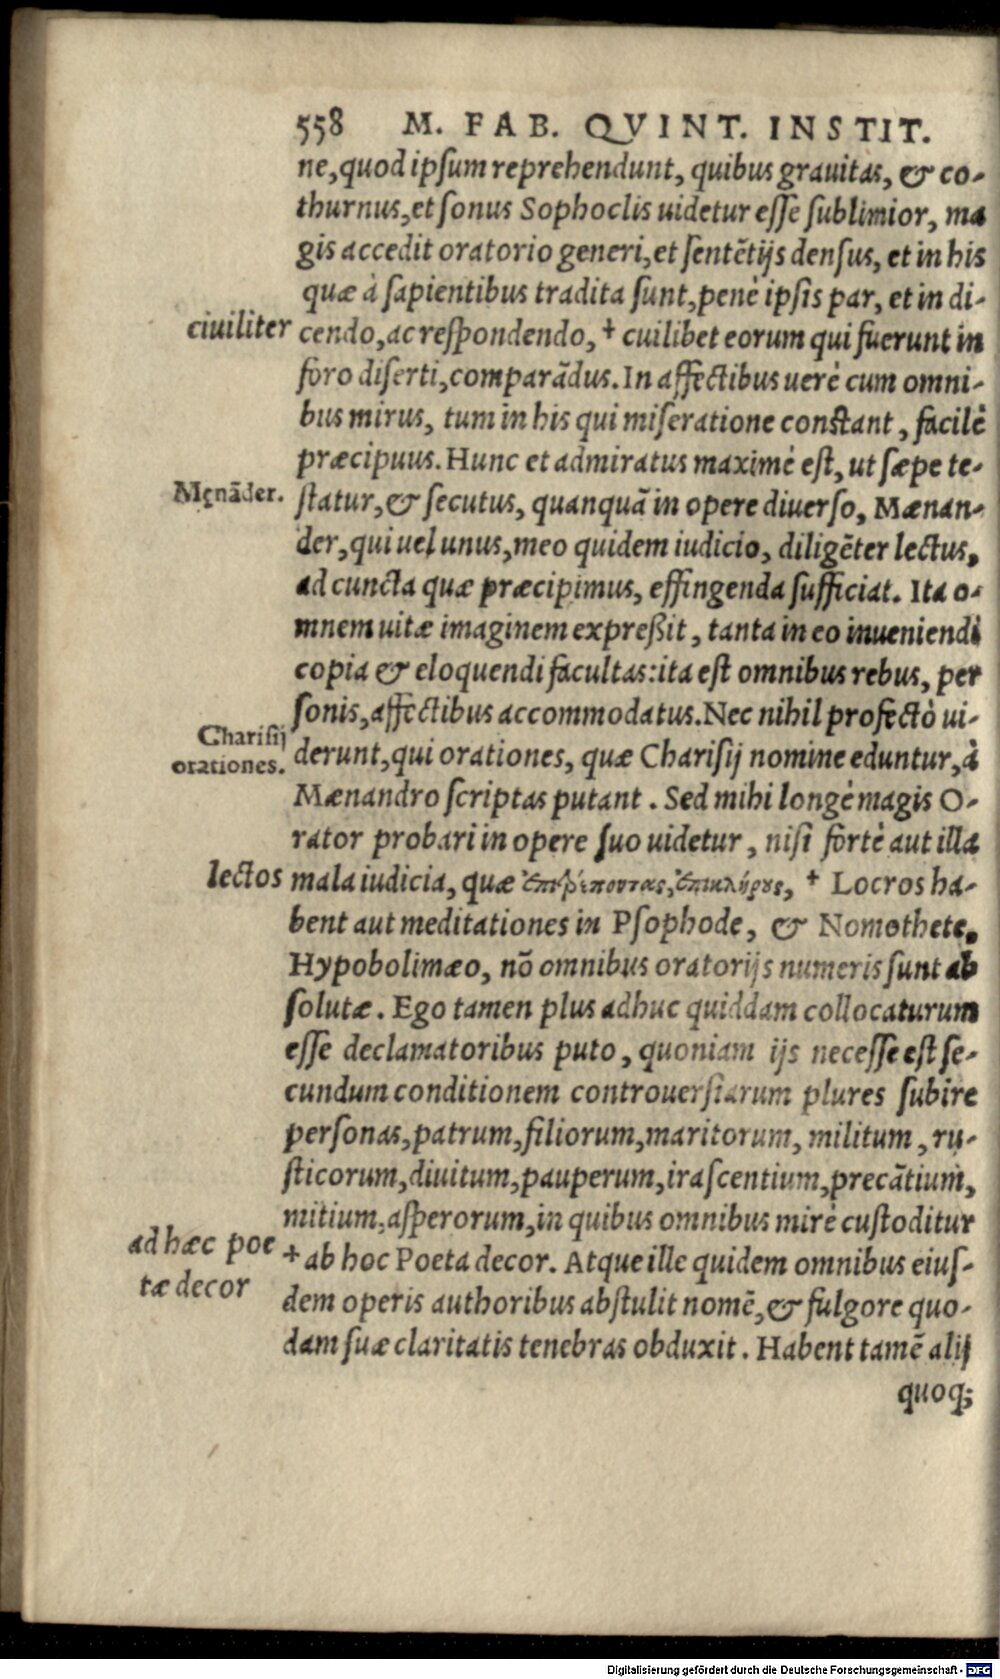 558 M. FAB. QVINT. INSTIT.
ne, quod ipſum reprehendunt, quibus grauitas, & co-
thurnus, et ſonus Sophoclis uidetur eſſe ſublimior, ma
gis accedit oratorio generi, et ſentẽtijs denſus, et in his
quæ à ſapientibus tradita ſunt, penè ipſis par, et in di-
ciuiliter
cendo, ac reſpondendo, + cuilibet eorum qui fuerunt in
foro diſerti, comparãdus. In affectibus uerè cum omni-
bus mirus, tum in his qui miſeratione conſtant, facilè
præcipuus. Hunc et admiratus maximè eſt, ut ſæpe te-
Męnãder.
ſtatur, & ſecutus, quanquã in opere diuerſo, Mænan-
der, qui uel unus, meo quidem iudicio, diligẽter lectus,
ad cuncta quæ præcipimus, effingenda ſufficiat. Ita o-
mnem uitæ imaginem expreßit, tanta in eo inueniendi
copia & eloquendi facultas: ita eſt omnibus rebus, per
ſonis, affectibus accommodatus. Nec nihil profectò ui-
Chariſij
orationes.
derunt, qui orationes, quæ Chariſij nomine eduntur, à
Mænandro ſcriptas putant. Sed mihi longè magis O-
rator probari in opere ſuo uidetur, niſi fortè aut illa
lectos
mala iudicia, quæ + Locros ha-
bent aut meditationes in Pſophode, & Nomothete,
Hypobolimæo, nõ omnibus oratorijs numeris ſunt ab
ſolutæ. Ego tamen plus adhuc quiddam collocaturum
eſſe declamatoribus puto, quoniam ijs neceſſe eſt ſe-
cundum conditionem controuerſiarum plures ſubire
perſonas, patrum, filiorum, maritorum, militum, ru-
ſticorum, diuitum, pauperum, iraſcentium, precãtium,
mitium, aſperorum, in quibus omnibus mirè cuſtoditur
ad hæc poe
tæ decor
+ ab hoc Poeta decor. Atque ille quidem omnibus eiuſ-
dem operis authoribus abſtulit nomẽ, & fulgore quo-
dam ſuæ claritatis tenebras obduxit. Habent tamẽ alij
quoq;
Digitalisierung gefördert durch die Deutsche Forschungsgemeinschaft - DFG